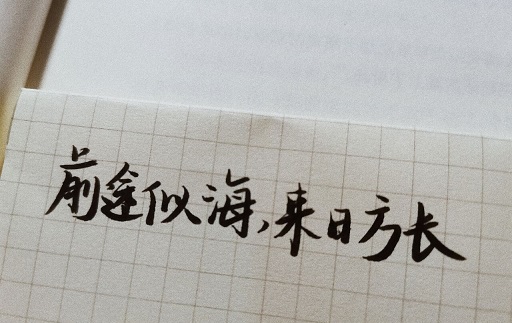 前途似海,来日方长